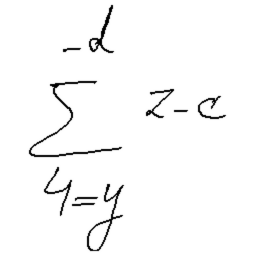 \sum_{4=y}^{-d} z-c